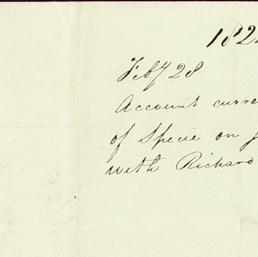 182
Feby 28
Account curre
of Specie on
with Richard